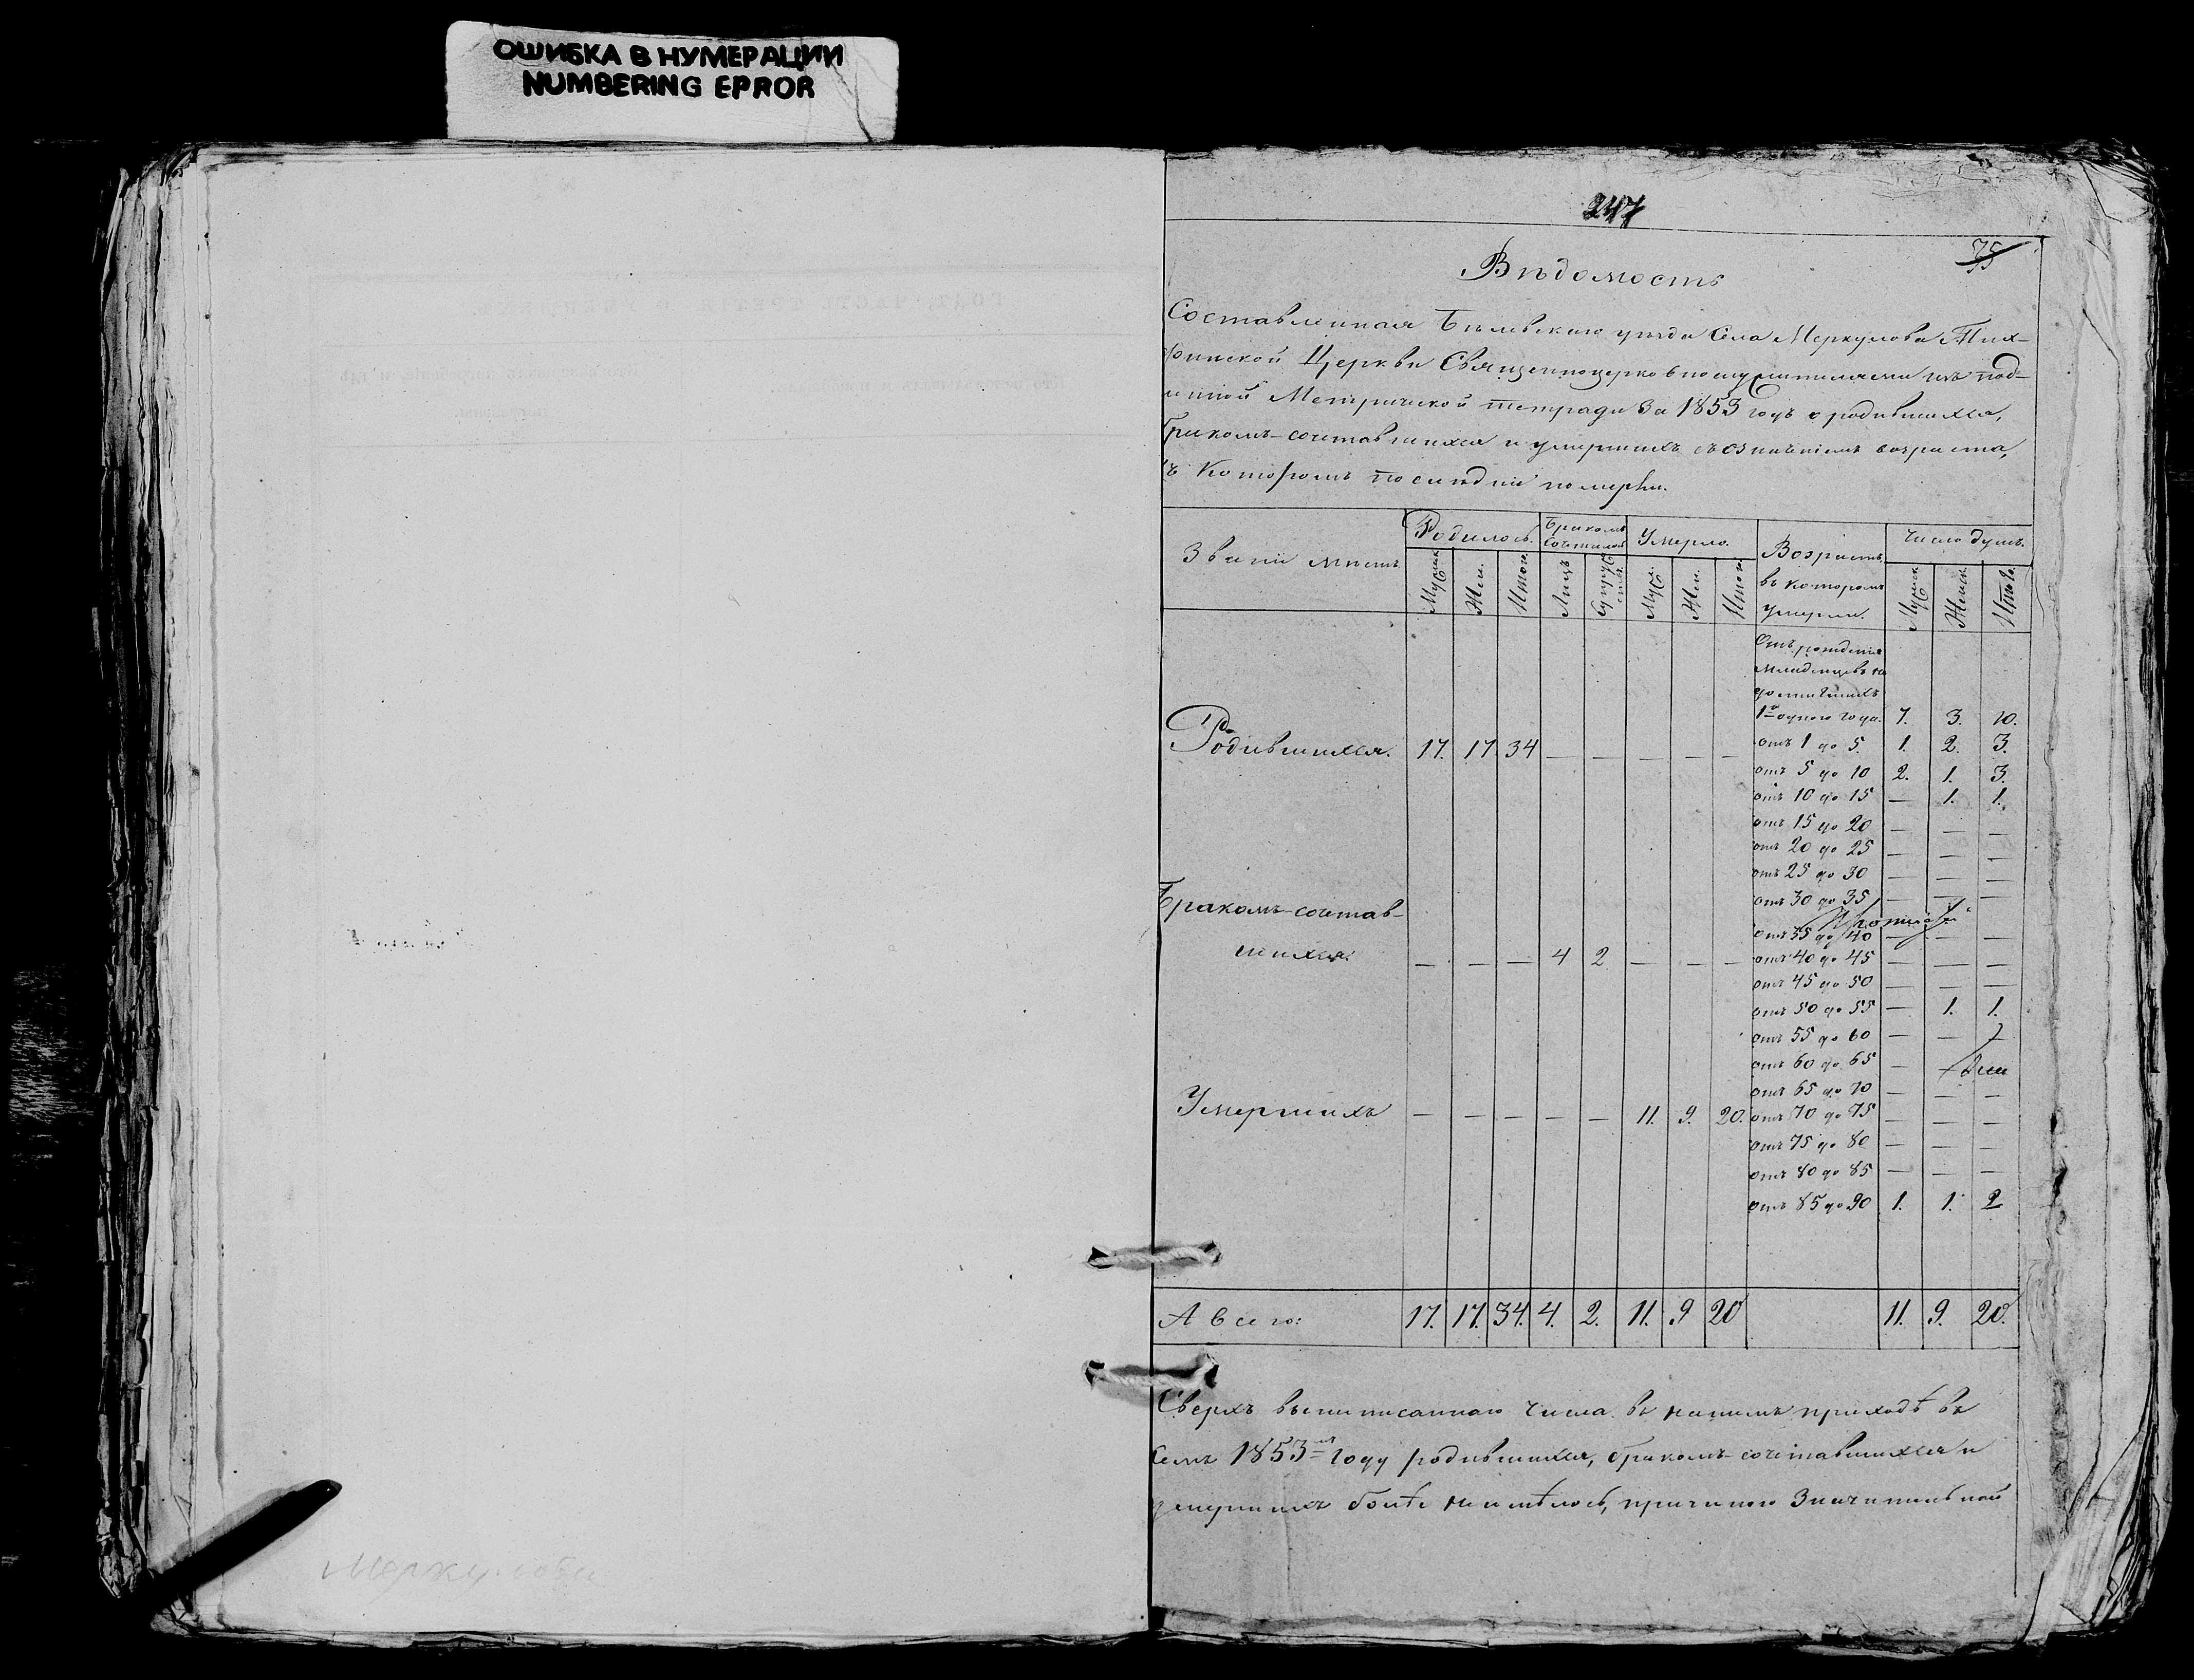 ОШИБКА В НУМЕРАЦИИ
NUMBERING ЕРROR
247
75
Вѣдомость
Составленная Бѣлевскаго уѣзда Села Меркулова Тих-
финской Церкви Священноцерковнослужителями изъ под-
линной Метрической тетради За 1853 годъ о родившихся,
бракомъ-сочетавшихся и умершихъ съ означеніемъ возраста,
въ Которомъ последніе померли.
Званіе мѣстъ Родилось. Бракомъ Сочеталось Умерло. Возрастъ, въ которомъ Умерли. Число душъ.
Мужск Жен. Итого Лицъ Супружествъ. Муж. Жен. Итого Мужск. Женск. Итого.
Отъ рожденія
младенцевъ не
достигшихъ
1го одного года. 7. 3. 10.
Родившихся. 17. 17 34 — — — — — отъ 1 до 5. 1. 2. 3.
отъ 5 до 10 2. 1. 3.
отъ 10 до 15 — 1. 1.
отъ 15 до 20 — — —
отъ 20 до 25 — — —
отъ 25 до 30 — — —
отъ 30 до 35 — — —
отъ 35 до 40 — — —
Бракомъ-сочетав-
шихся. — — — 4 2 — — — отъ 40 до 45 — — —
отъ 45 до 50 — — —
отъ 50 до 55 — 1. 1.
отъ 55 до 60 — —
отъ 60 до 65 — —
отъ 65 до 70 — — —
Умершихъ — — — — — 11. 9. 20. отъ 70 до 75 — — —
отъ 75 до 80 — — —
отъ 80 до 85 — — —
отъ 85 до 90 1. 1. 2
А всего: 17. 17. 34. 4. 2. 11. 9 20 11. 9. 20.
Сверхъ вышписаннаго числа въ нашемъ приходѣ въ
семъ 1853мъ году родившихся, бракомъ-сочетавшихся и
умершихъ болѣе не имѣлось, причиною Значительной
Меркулова